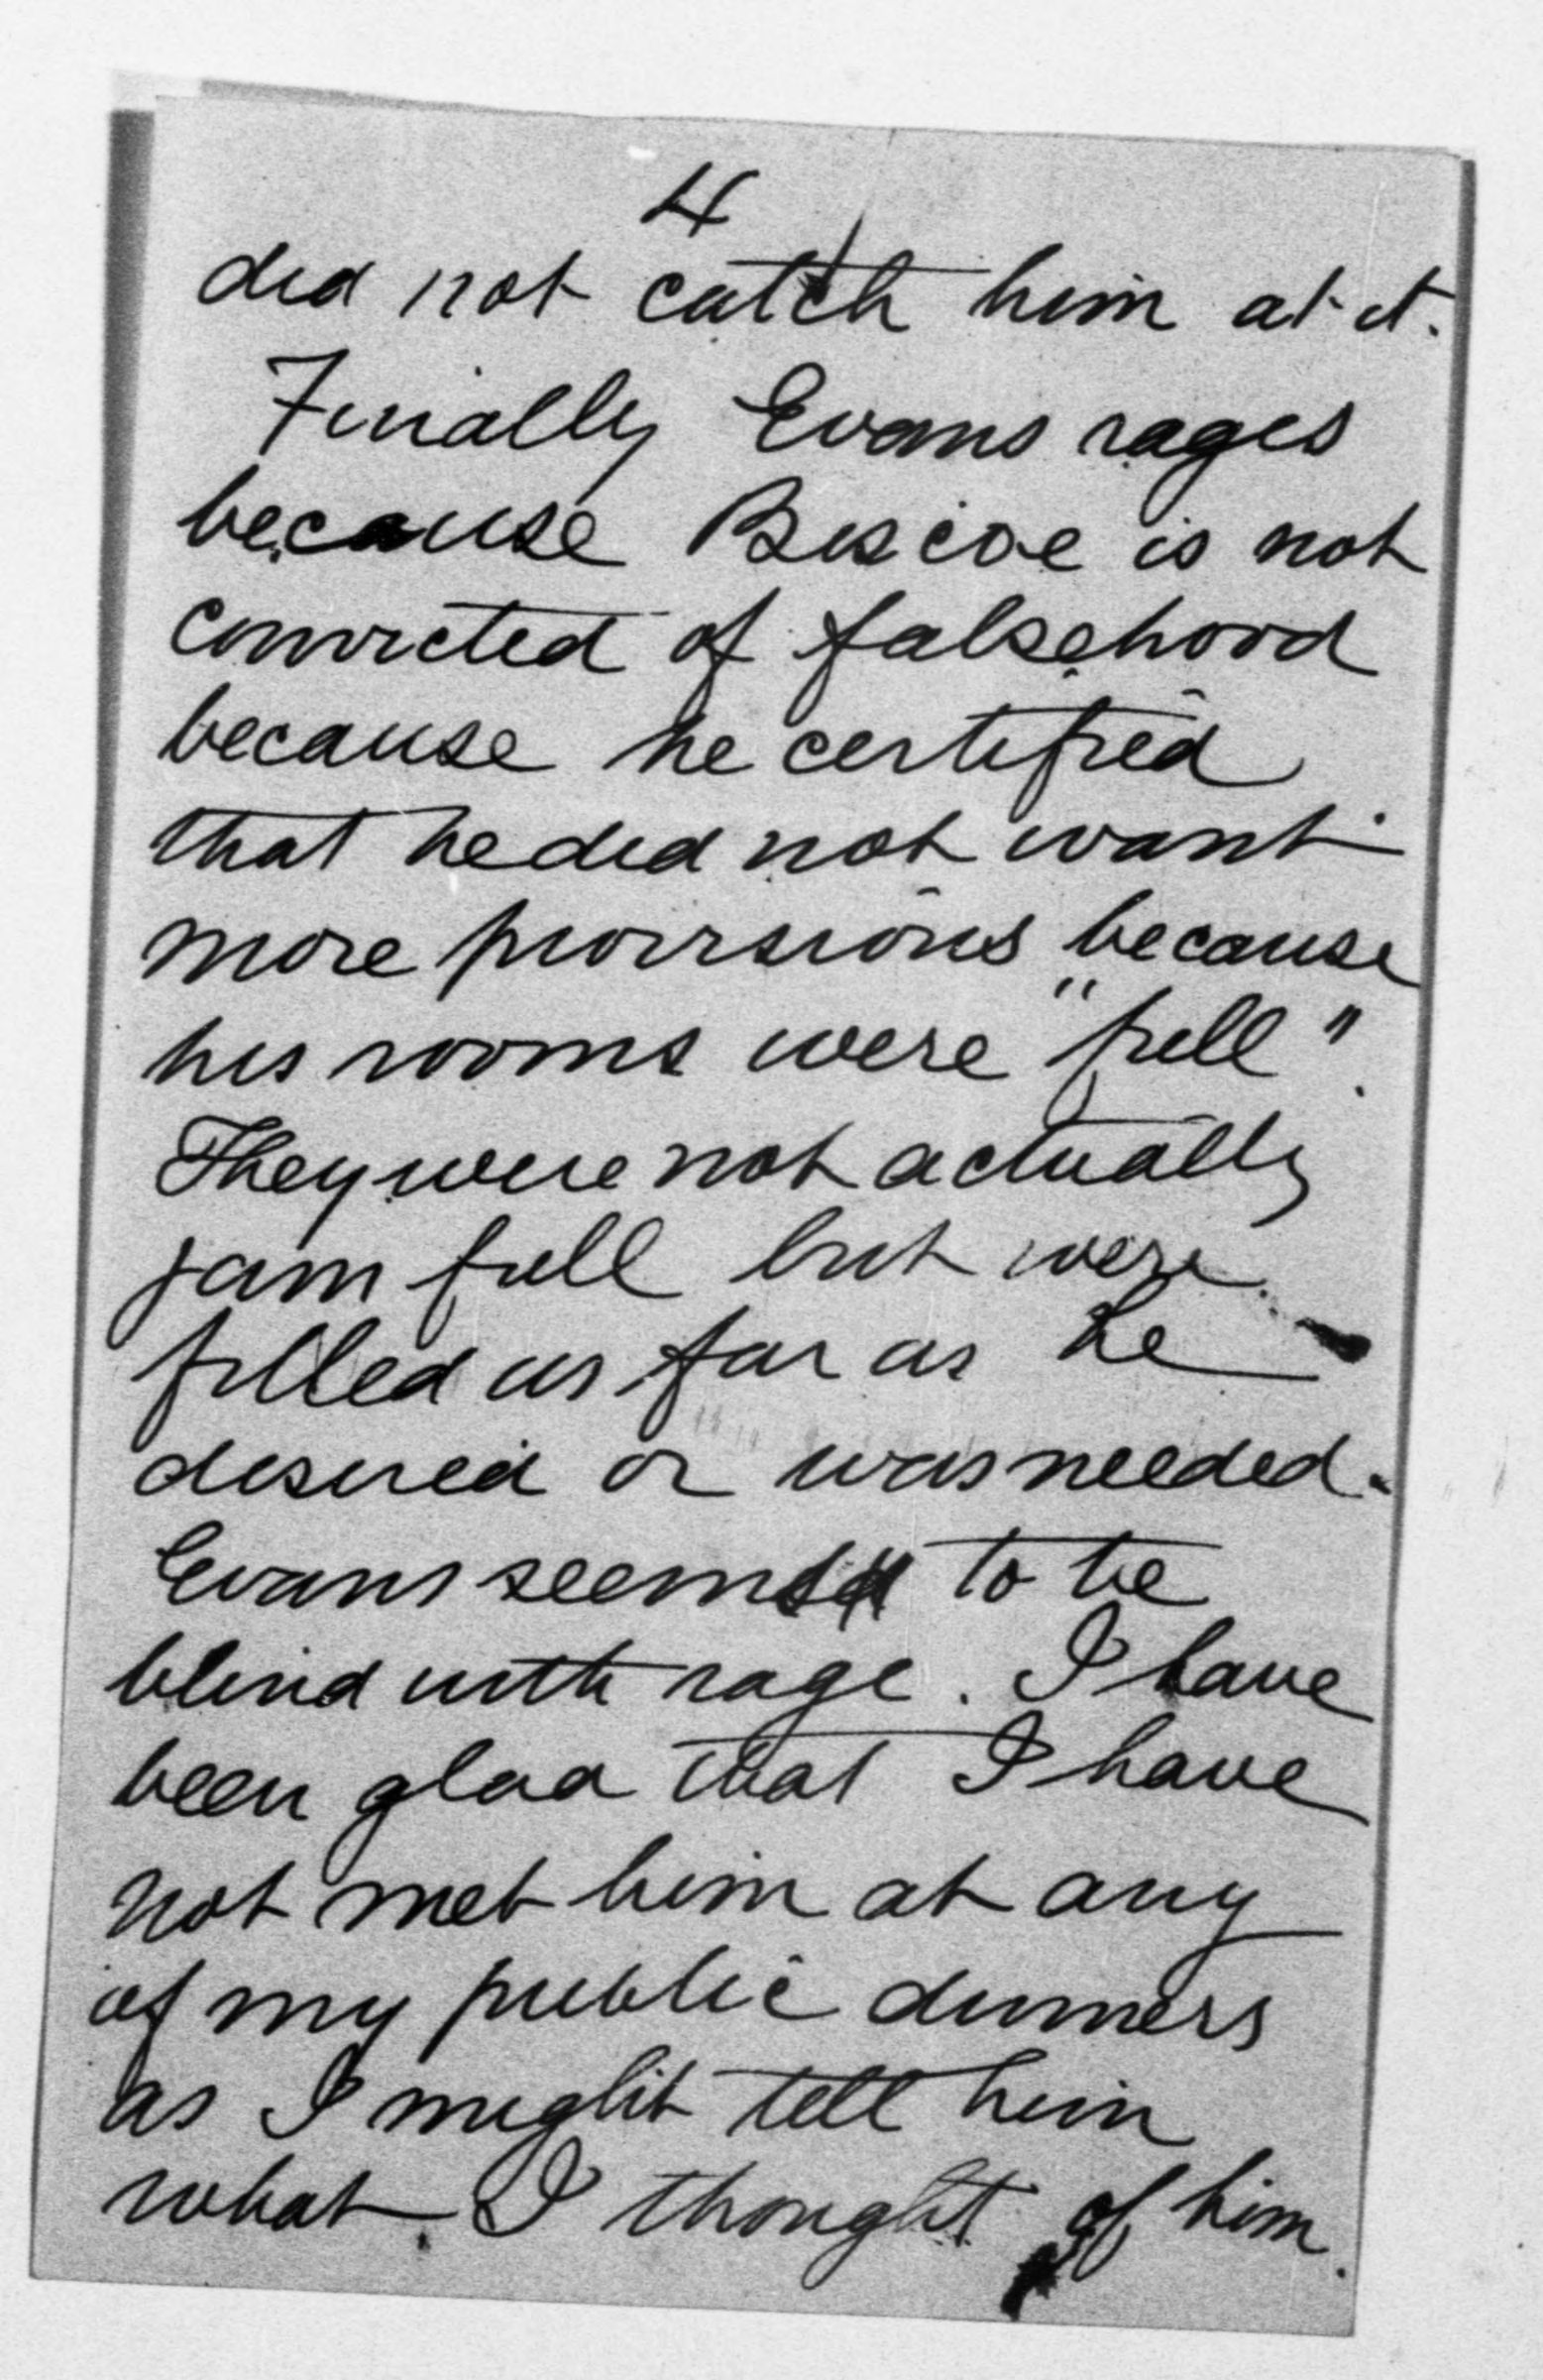 4
did not catch him at it.
Finally Evans rages
because Biscoe is not
convicted of falsehood
because he certified
that he did not want
more provisions because
his rooms were "full".
They were not actually
jam full but were
filled as far as he
desired or was needed.
Evans seems to be
blind with rage. I have
been glad that I have
not met him at any
of my public dinners
as I might tell him
what I thought of him.